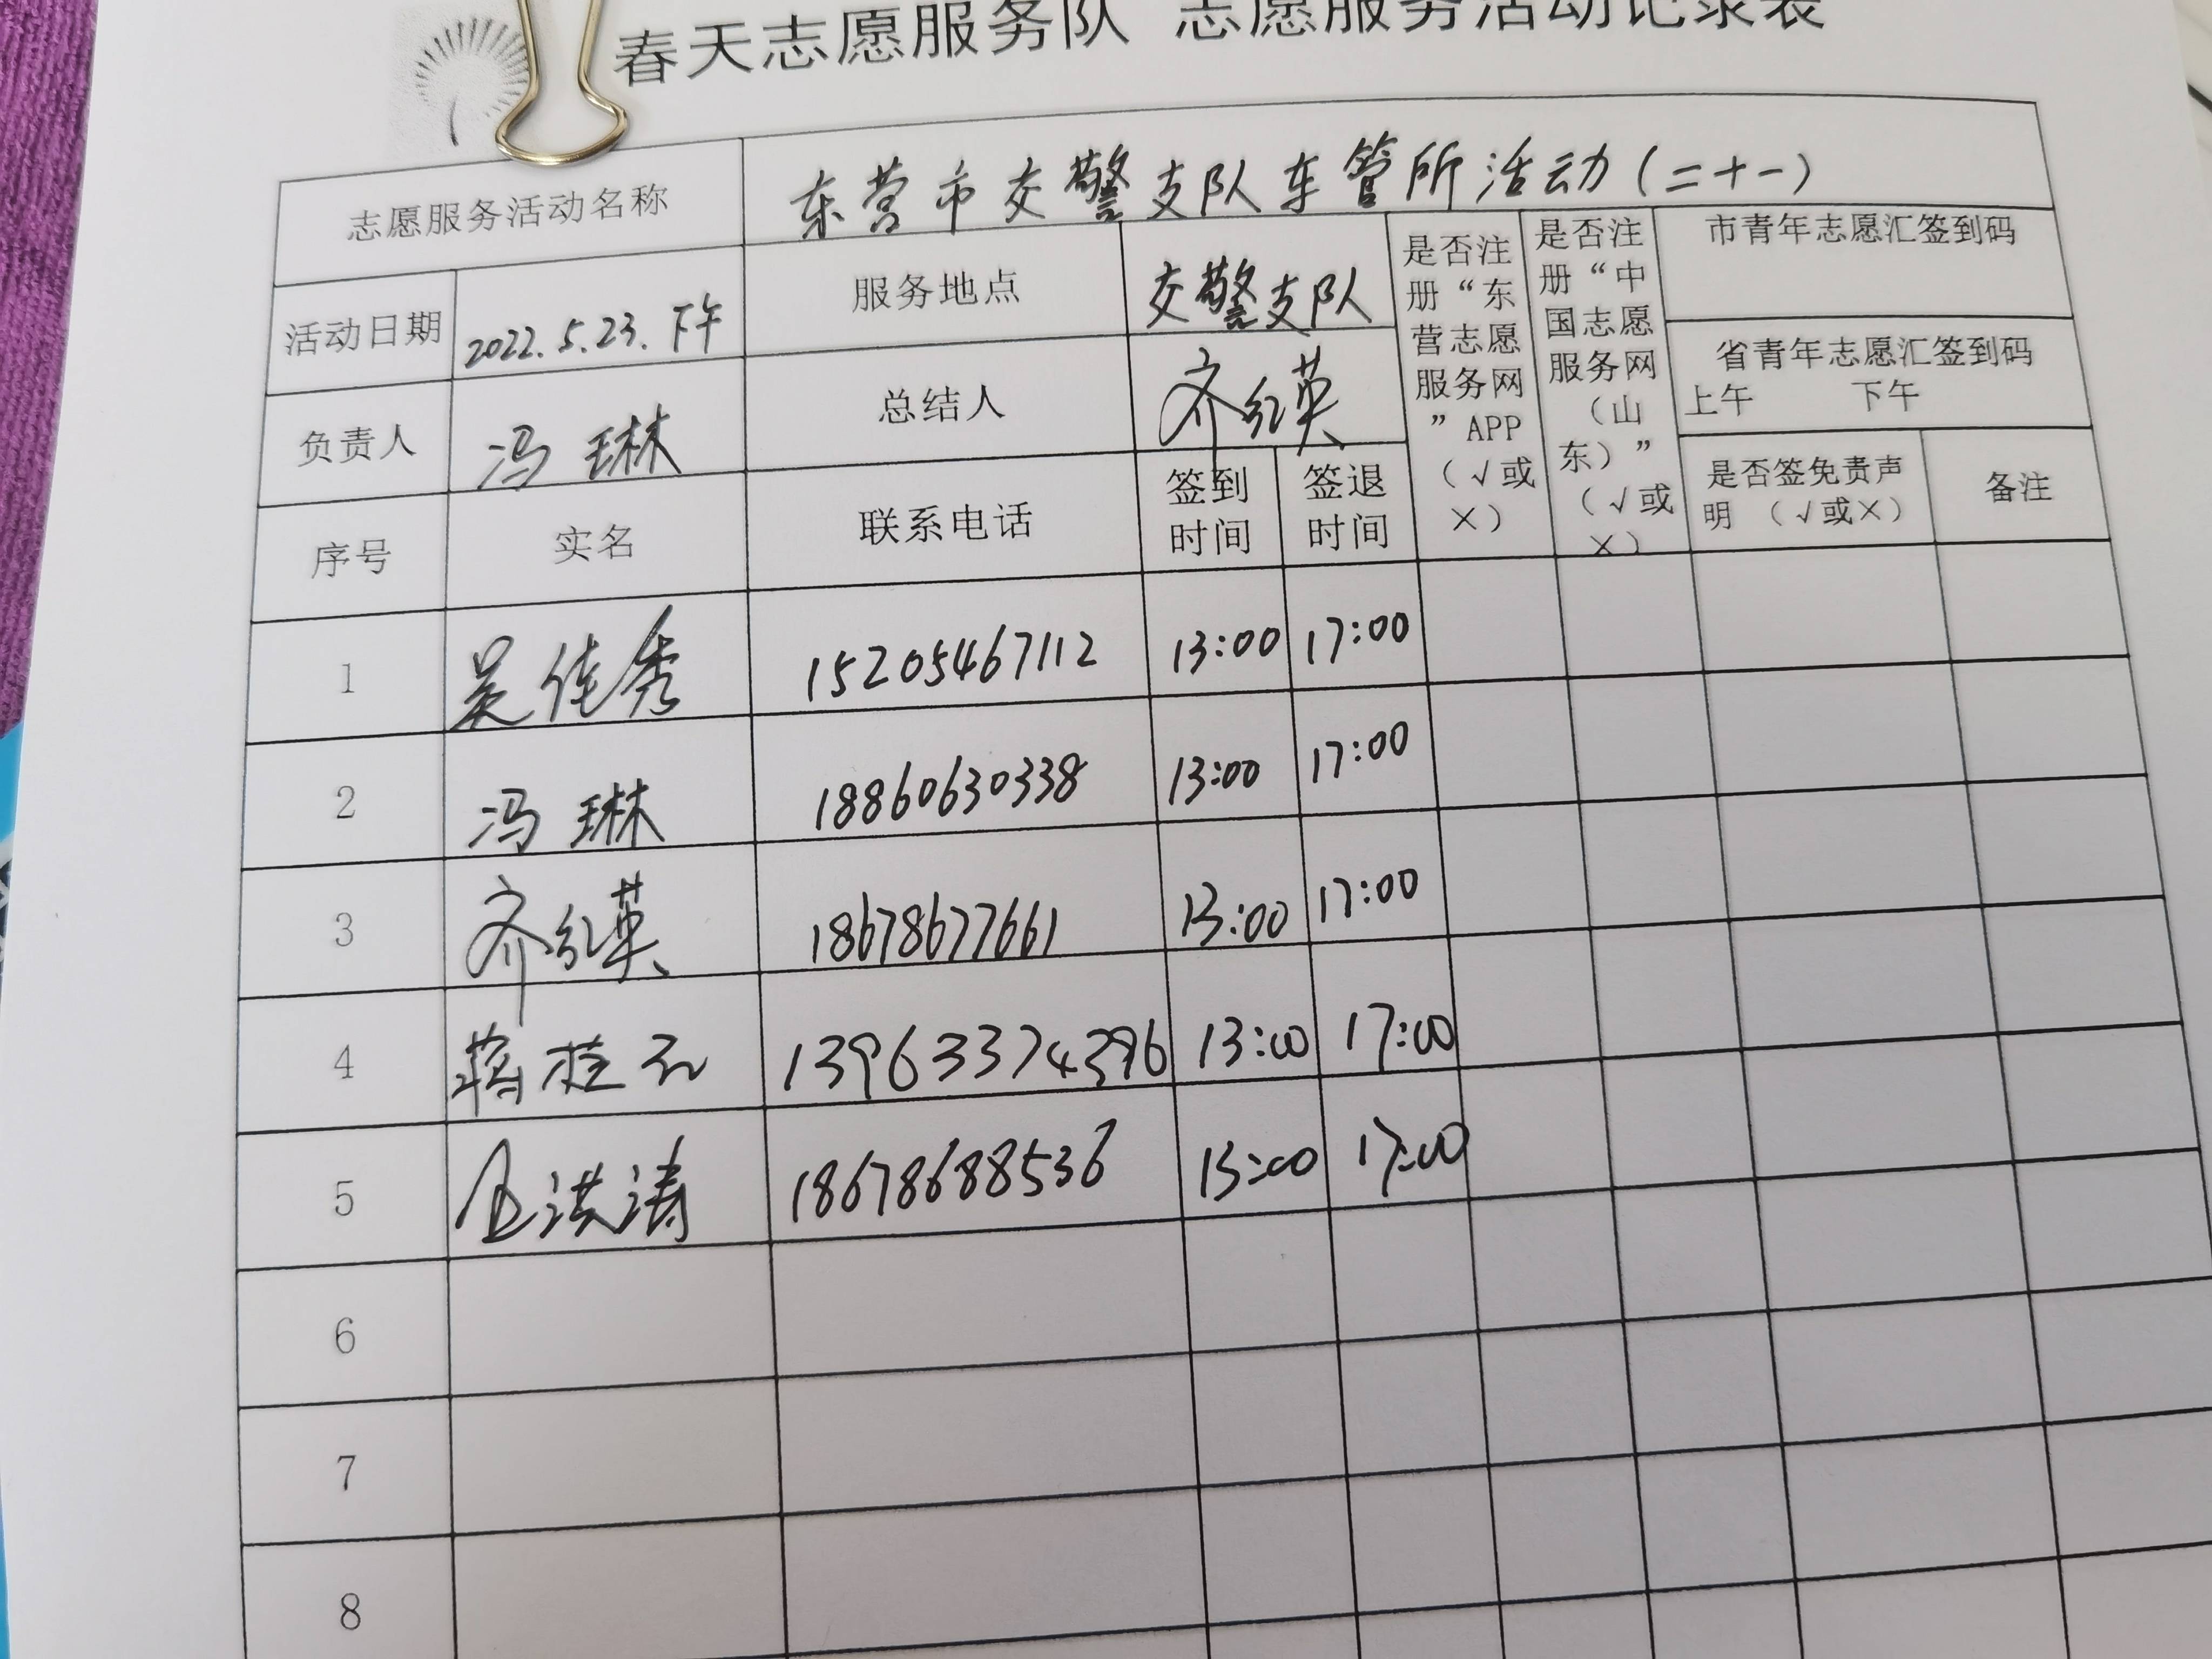 春天志愿服务队 志愿服务活动记录表
志愿服务活动名称 东营市交警支队车管所活动(二十一)
活动日期 2022.5.23.下午 服务地点 交警支队
是否注册“东营志愿服务网”APP（√或×）
是否注册“中国志愿服务网（山东）”（√或×）
市青年志愿汇签到码
省青年志愿汇签到码
上午 下午
负责人 冯琳 总结人 齐红英
序号 实名 联系电话 签到时间 签退时间 是否签免责声明（√或×） 备注
1 吴佳秀 15205467112 13:00 17:00
2 冯琳 18860630338 13:00 17:00
3 齐红英 18678677661 13:00 17:00
4 蒋桂 13963374396 13:00 17:00
5 洪涛 18678688536 13:00 17:00
6
7
8